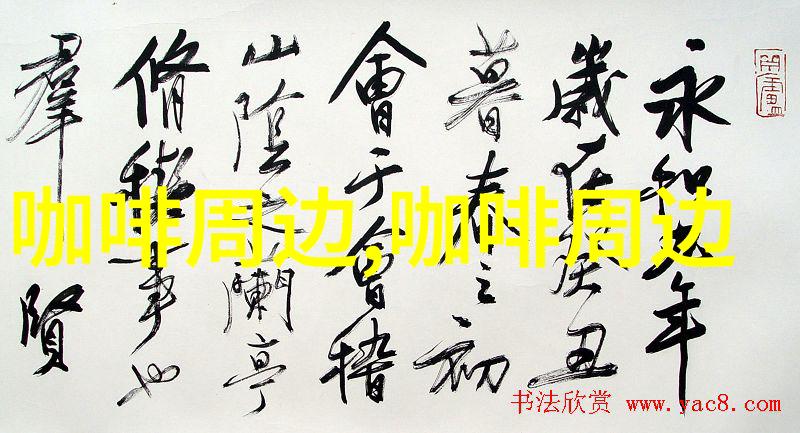 永和九年
歲在癸丑
暮春之初
會于會稽
山陰之蘭亭
脩稧事也
羣賢
咖啡周边,咖啡周边
书法欣赏 www.yac8.com